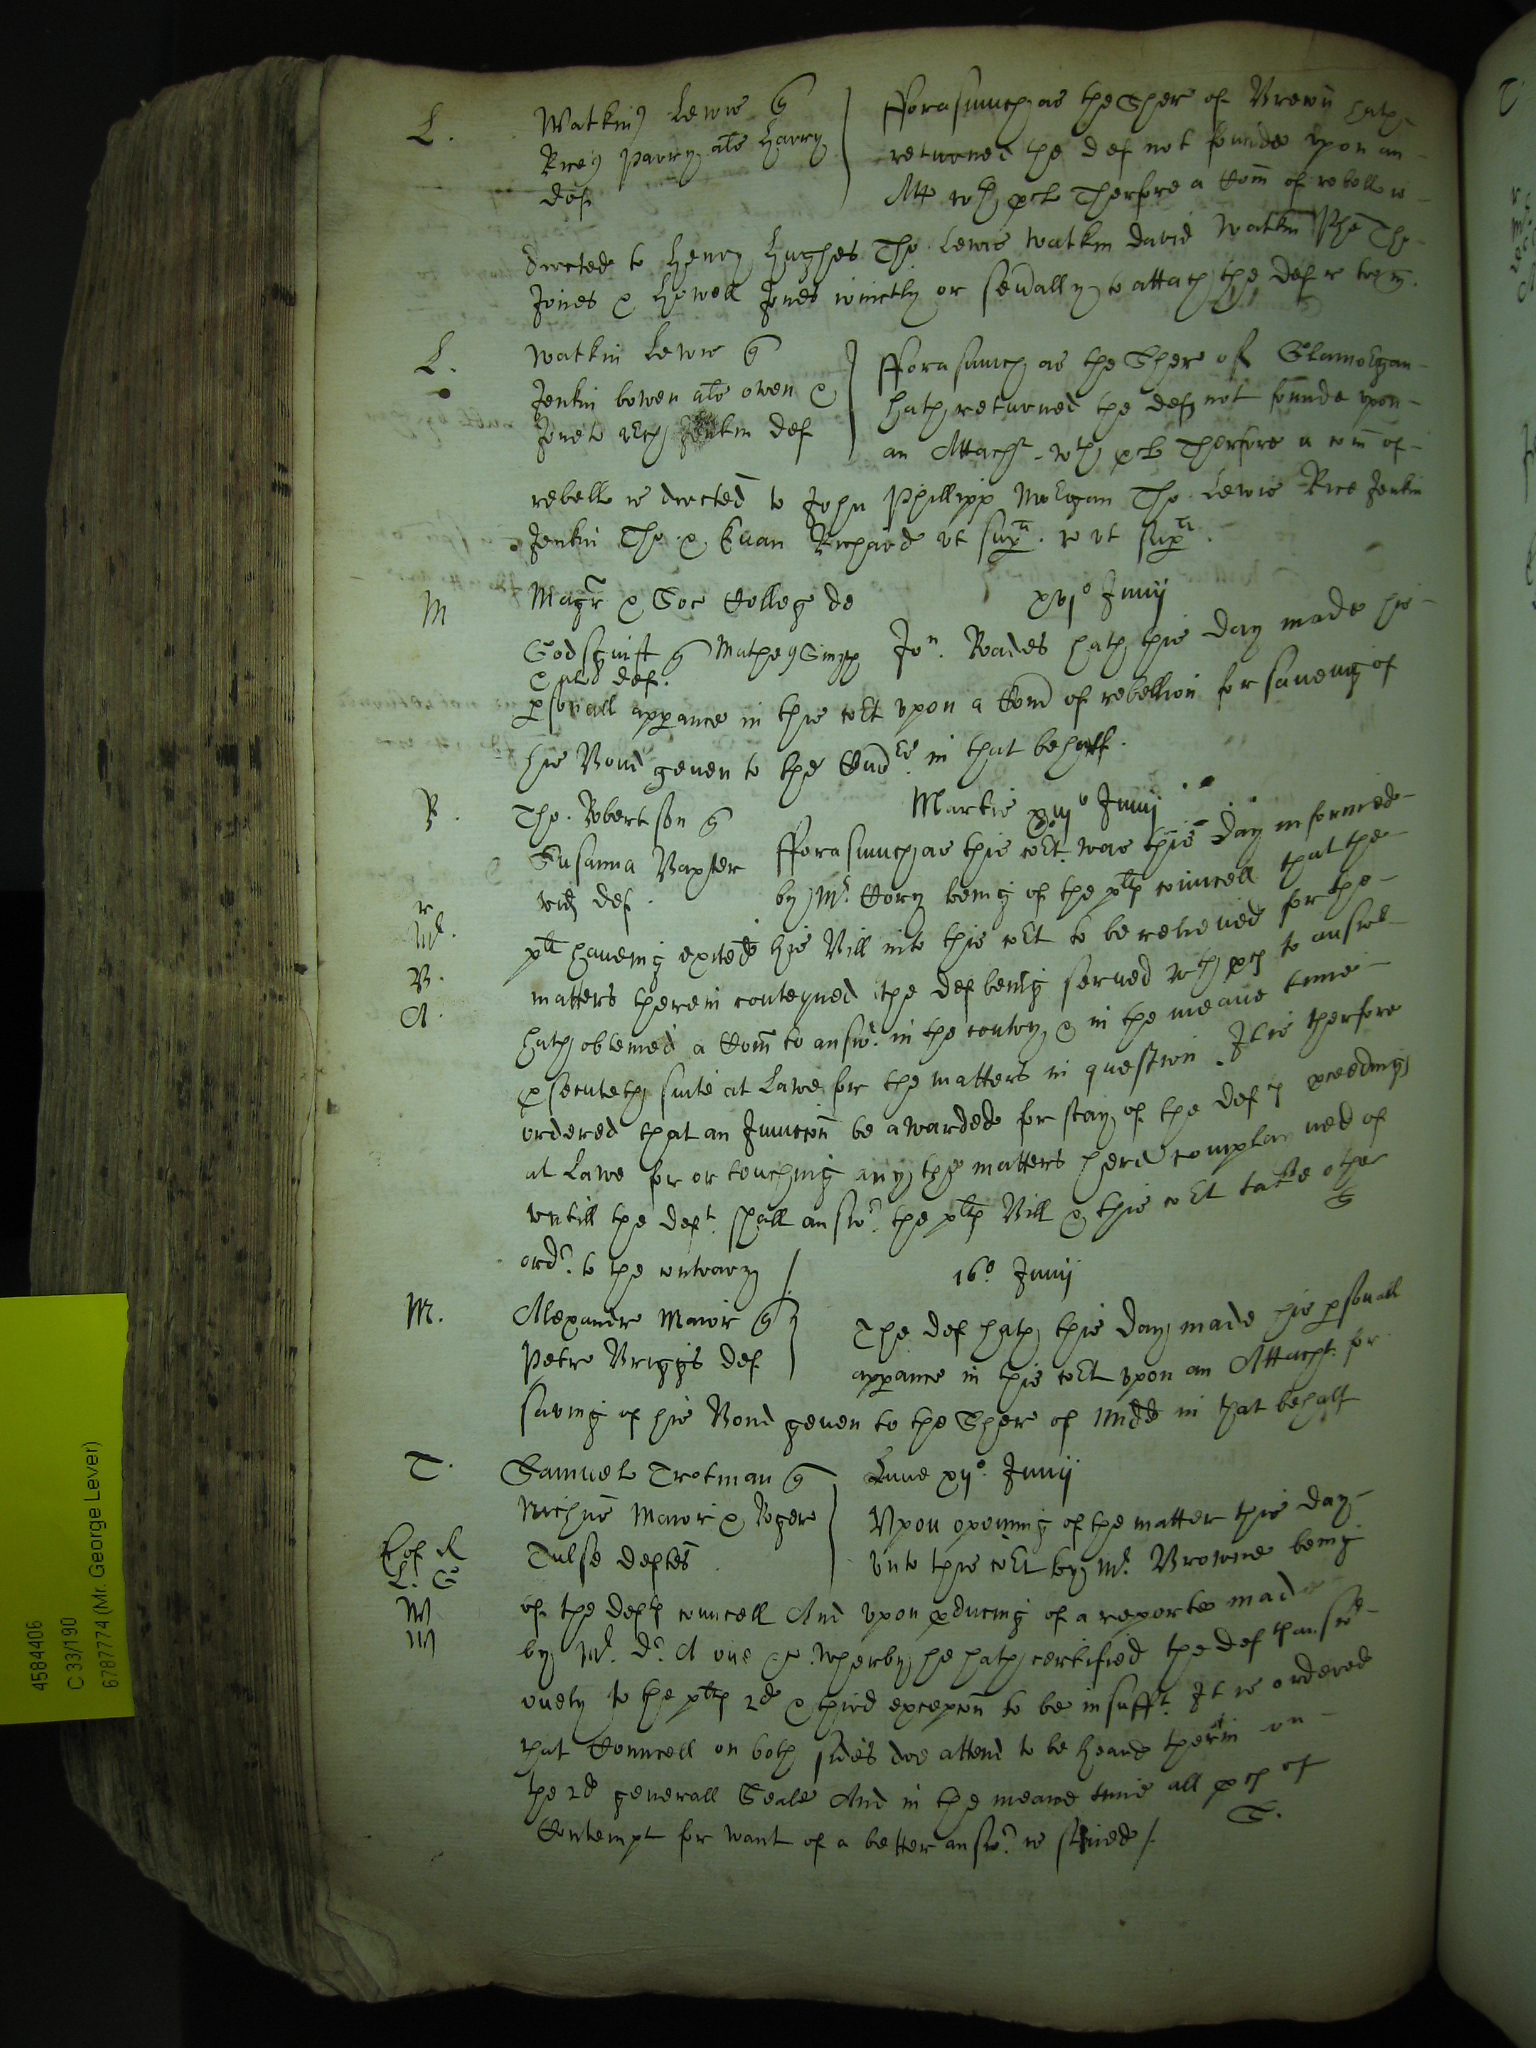 L. Watkin Lewis q
Rice Parry als Harry
def
fforasmuch as the Sher of Brecon hath
returned the def not founde upon an
Att wth pcl Therfore a Com of rebell is
directed to Henry Hughes Tho. Lewis Watkin David Watkin Tho
Jones & Howell Jones ioinctly or seually to attach the def
L. Watkin Lewis q
Jenkin bowen als owen &
Jenkin def
fforasmuch as the Sher of Glamorgan
hath returned the def not founde upon
an Attacht wth pcl Therfore a com of
rebell is directed to John Phillipp Morgan Tho. Lewis Rice Jenkin
Jenkin Tho. & Euan Richard ut supra ut supra
M Magr & Soc Colleg de
Godsguift q Mathey
& al def.
xvjo Junij
Jon. Rades hath this day made his
psonall appance in this cort upon a Com of rebellion for saueing of
his Bond geuen to the Comrs in that behalf.
R. Tho. Robertson q
Susanna Baxter
wid def.
Martis xvijo Junij
fforasmuch as this cort was this day informed
by Mr. Cory being of the plts councell that the
r
Md.
B.
A.
plt haueing exited his Bill into this cort to be releiued for the
matters therein conteyned the def being serued wth pcs to answer
hath obteined a Com to answr. in the contry & in the meane time
psecuteth suite at Lawe for the matters in question. It is therfore
ordered that an Iniunccon be awarded for stay of the def pceedings
at Lawe for or touching any the matters here complayned of
untill the deft. shall answr. the plts Bill & this cort take other
ordr. to the contrary /
S
M. Alexandre Maior q
Petre Briggs def
16o Junij
The def hath this day made his psonall
appance in this cort upon an Attacht. for
saving of his Bond geuen to the Sher of Midd in that behalf
T. Samuel Trotman q
Maior & Roger
Tulse deftes
Lune Junij
Upon opening of the matter this day
unto this cort by Mr. Browne being
L. S
M
of the defts councell And upon pducing of a reporte made
by Mr. Dr. wherby he hath certified the def answer
onely to the plts 2d & third excepcon to be insufft. It is ordered
that Councell on both sides doe attend to be heard therin on
the 2d generall Seale And in the meane time all pcs of
Contempt for want of a better answr. is staied /.
S.
4584406
C 33/190
6787774 (Mr. George Lever)